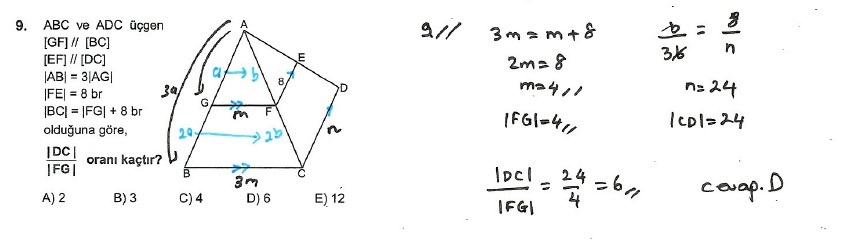 9. ABC ve ADC üçgen
[GF] // [BC]
[EF] // [DC]
|AB| = 3|AG|
|FE| = 8 br
|BC| = |FG| + 8 br
olduğuna göre,
|DC| / |FG| oranı kaçtır?
A) 2 B) 3 C) 4 D) 6 E) 12
A
E
D
G
F
B
C
8
3a
a b
m
2a 2b
n
3m
9//
3m = m + 8
2m = 8
m = 4,,
|FG| = 4,,
b / 3b = 8 / n
n = 24
|CD| = 24
|DC| / |FG| = 24 / 4 = 6,,
cevap. D